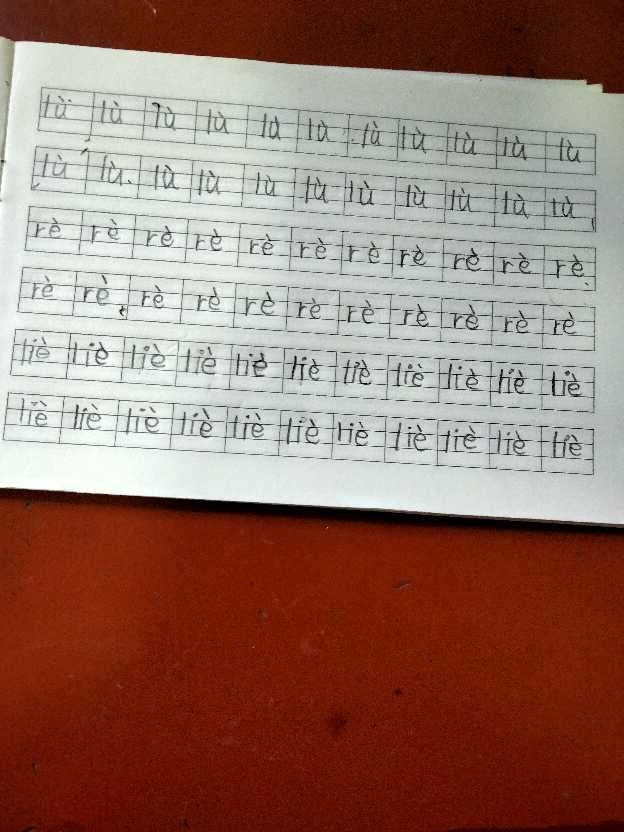 lǜ lù lù lù lù lù lù lù lù lù lù
lù lù lù lù lù lù lù lù lù lù lù
rè rè rè rè rè rè rè rè rè rè rè
rè rè rè rè rè rè rè rè rè rè rè
liè liè liè liè liè liè liè liè liè liè liè
liè liè liè liè liè liè liè liè liè liè liè